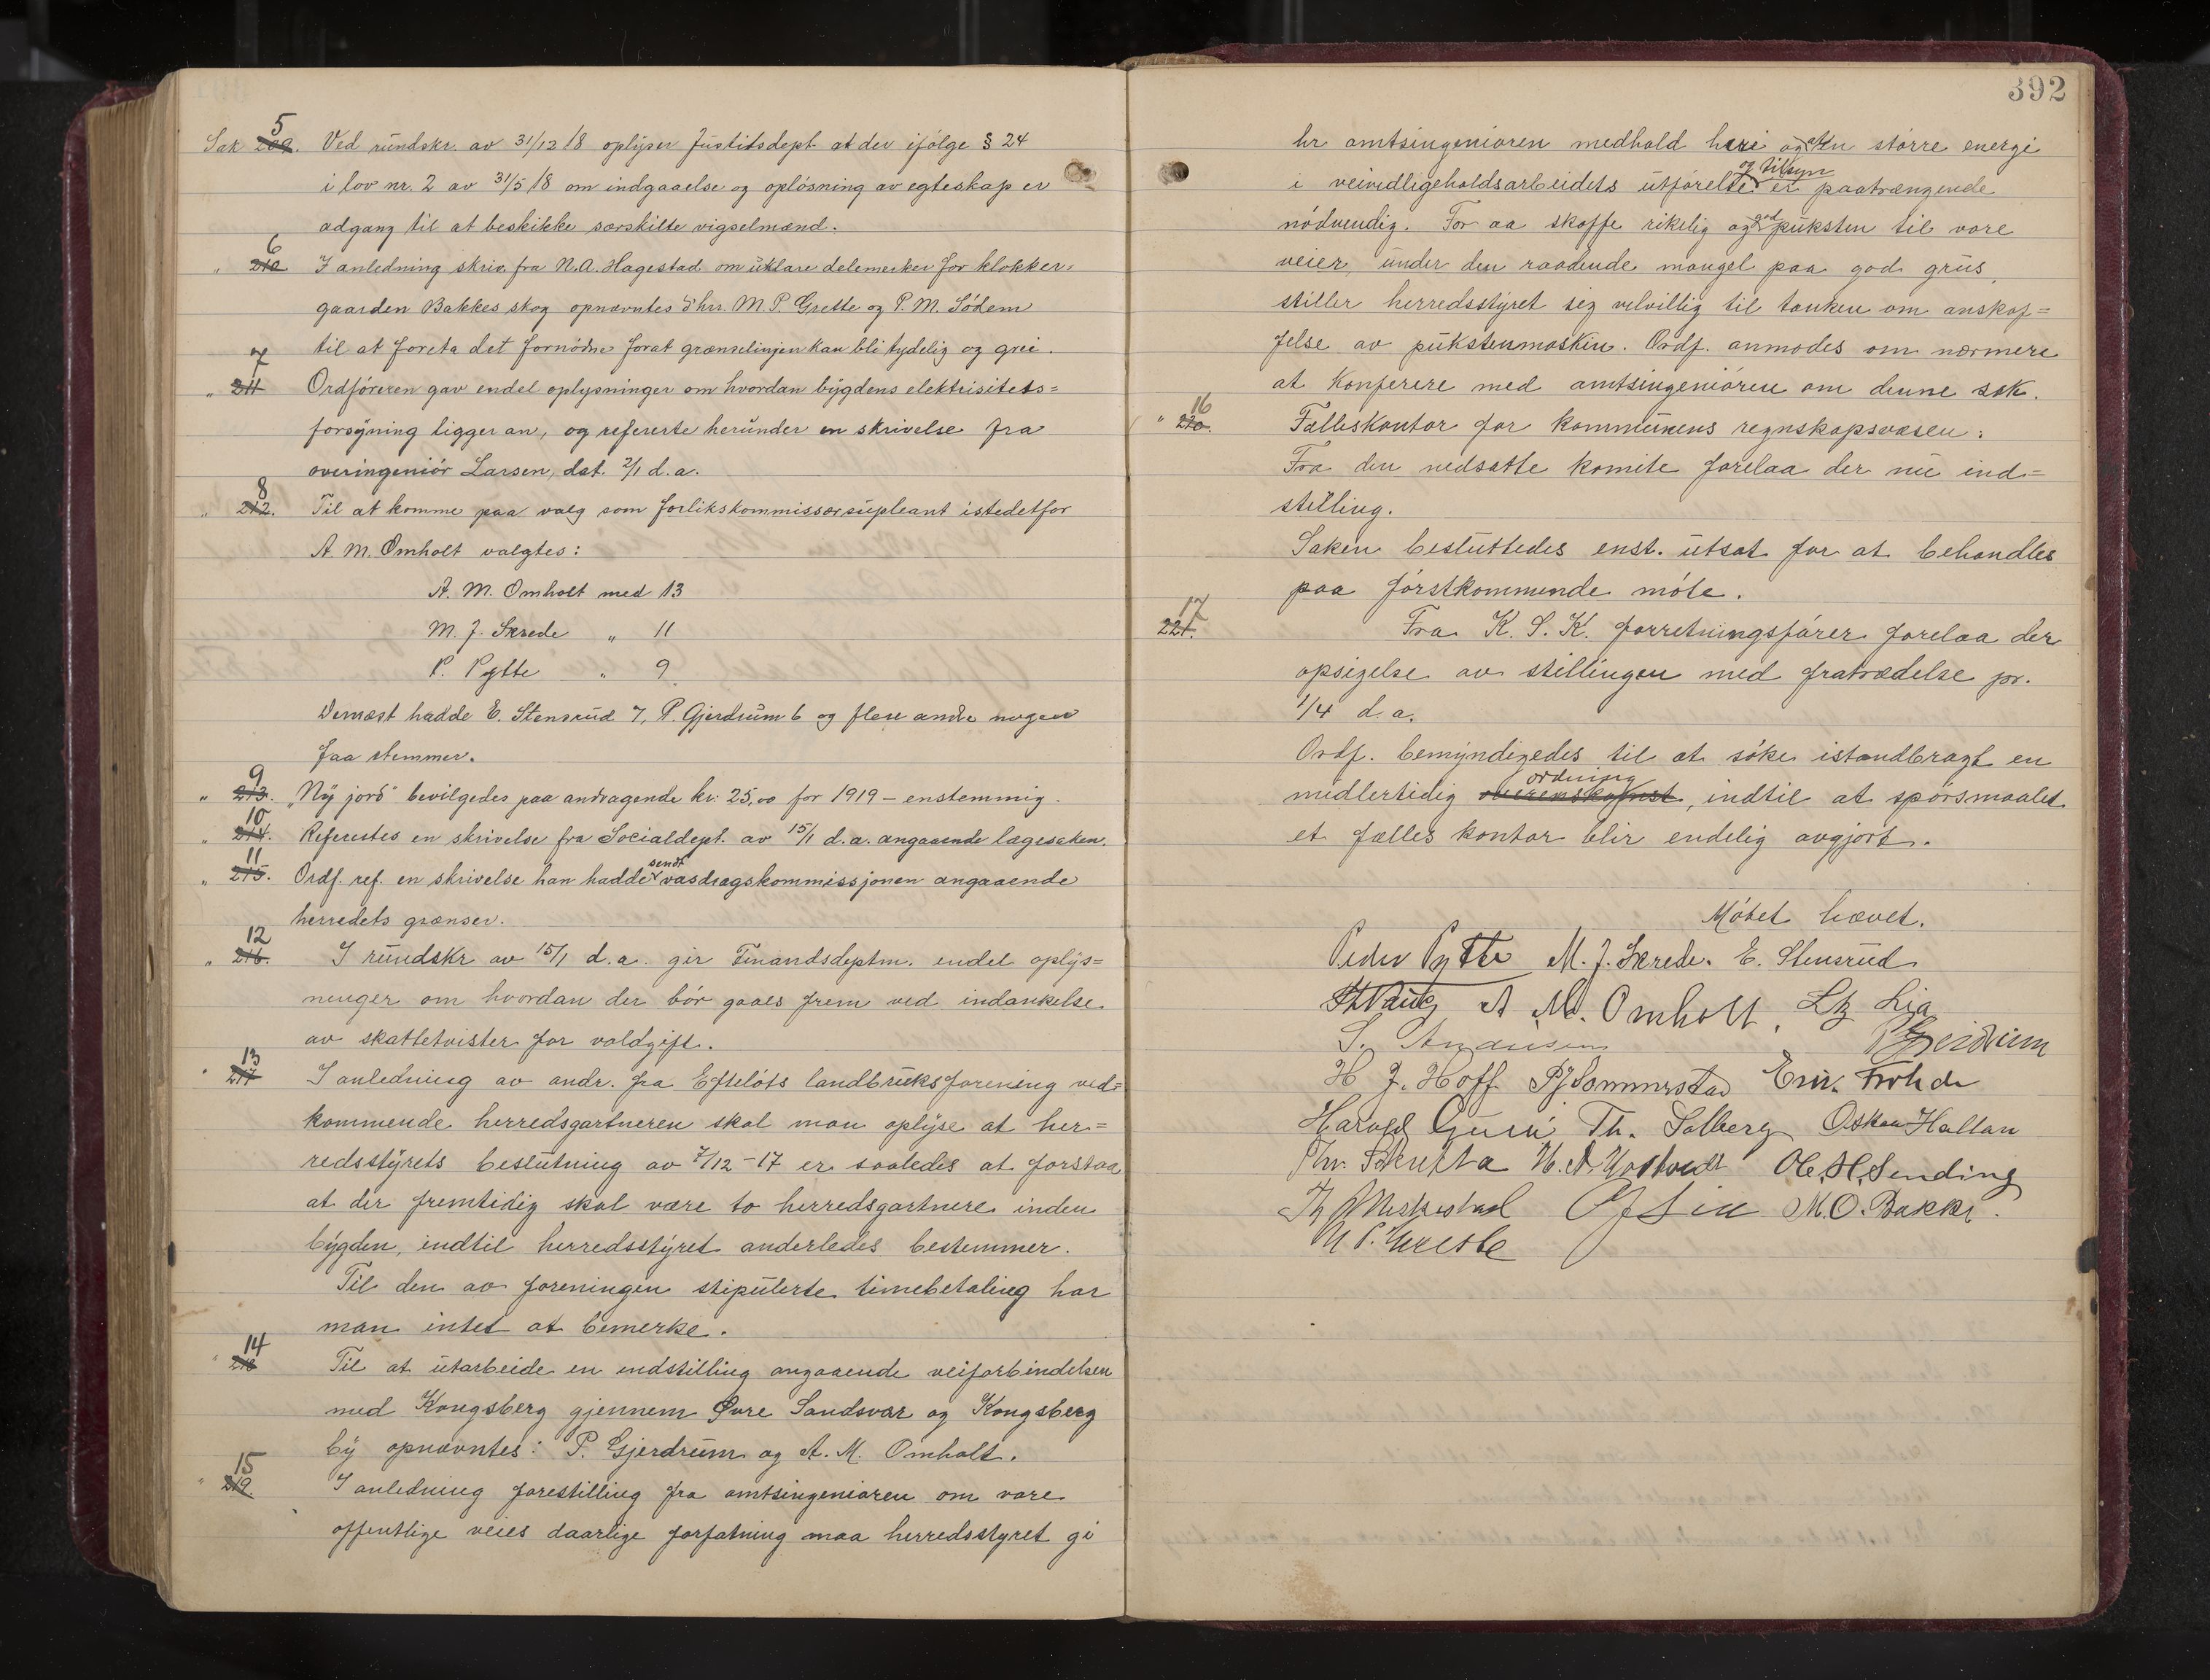 Sak 209. 5 Ved rundskr. av 31/12 18 oplyser Justitsdept at der ifølge § 24
i lov nr. 2 av 31/5 18 om indgaaelse og opløsning av egteskap er
adgang til at beskikke særskilte vigselmænd.
" 210 6 I anledning skriv. fra N.A. Hagestad om uklare delemerker for klokker-
gaarden Bakkes skog opnævntes d'hrr. M.P. Grette og P.M. Sødem
til at foreta det fornødne forat grænselinjen kan bli tydelig og grei.
" 211 7 Ordføreren gav endel oplysninger om hvordan bygdens elektrisitets=
forsyning ligger an, og refererte herunder en skrivelse fra
overingeniør Larsen, dat. 2/1 d.a.
" 212. 8 Til at komme paa valg som forlikskommissærsupleant istedetfor
A. M. Omholt valgtes:
A. M. Omholt med 13
M. J. Skrede " 11
P. Pytte " 9
Dernæst hadde E. Stensrud 7, P. Gjerdrum 6 og flere andre nogen
faa stemmer.
" 213. 9 "Ny jord" bevilgedes paa andragende kr. 25,00 for 1919 – enstemmig.
" 214. 10 Referertes en skrivelse fra Socialdept. av 15/1 d.a. angaaende lægesaken.
" 215. 11 Ordf. ref. en skrivelse han hadde sendt vasdragskommissjonen angaaende
herredets grænser.
" 216. 12 I rundskr av 15/1 d.a. gir Finandsdeptm. endel oplys=
ninger om hvordan der bør gaaes frem ved indankelse
av skattetvister for voldgift.
" 217 13 I anledning av andr. fra Efteløts landbruksforening ved=
kommende herredsgartneren skal man oplyse at her=
redsstyrets beslutning av 7/12–17 er saaledes at forstaa
at der fremtidig skal være to herredsgartnere inden
bygden, indtil herredsstyret anderledes bestemmer.
Til den av foreningen stipulerte timebetaling har
man intet at bemerke.
" 218 14 Til at utarbeide en indstilling angaaende veiforbindelsen
med Kongsberg gjennem Øvre Sandsvær og Kongsberg
by opnævntes: P. Gjerdrum og A. M. Omholt.
" 219. 15 I anledning forestilling fra amtsingeniøren om vore
offentlige veies daarlige forfatning maa herredsstyret gi
392
hr amtsingeniøren medhold heri og at en større energi
i veivedligeholdsarbeidets utførelse og tilsyn er paatrængende
nødvendig. For aa skaffe rikelig og god puksten til vore
veier, under den raadende mangel paa god grus,
stiller herredsstyret sig velvillig til tanken om anskaf=
felse av pukstenmaskin. Ordf. anmodes om nærmere
at konferere med amtsingeniøren om denne sak.
" 220. 16 Fælleskontor for kommunens regnskapsvæsen:
Fra den nedsatte komite forelaa der nu ind=
stilling.
Saken besluttedes enst. utsat for at behandles
paa førstkommende møte.
221. 17 Fra K. S. K. forretningsfører forelaa der
opsigelse av stillingen med fratrædelse pr.
1/4 d.a.
Ordf. bemyndigedes til at søke istandbragt en
midlertidig overenskomst ordning, indtil at spørsmaalet
et fælles kontor blir endelig avgjort.
Møtet hævet.
Peder Pytte M. J. Skrede. E. Stensrud
A M. Omholt, Lia
S. P Gjerdrum
H J. Hoff PJ Sommerstad
Harald Th. Solberg Oskar Hallan
Chr. Skutta Ole H. Sending
Lia M.O. Bakke.
M P. Grette